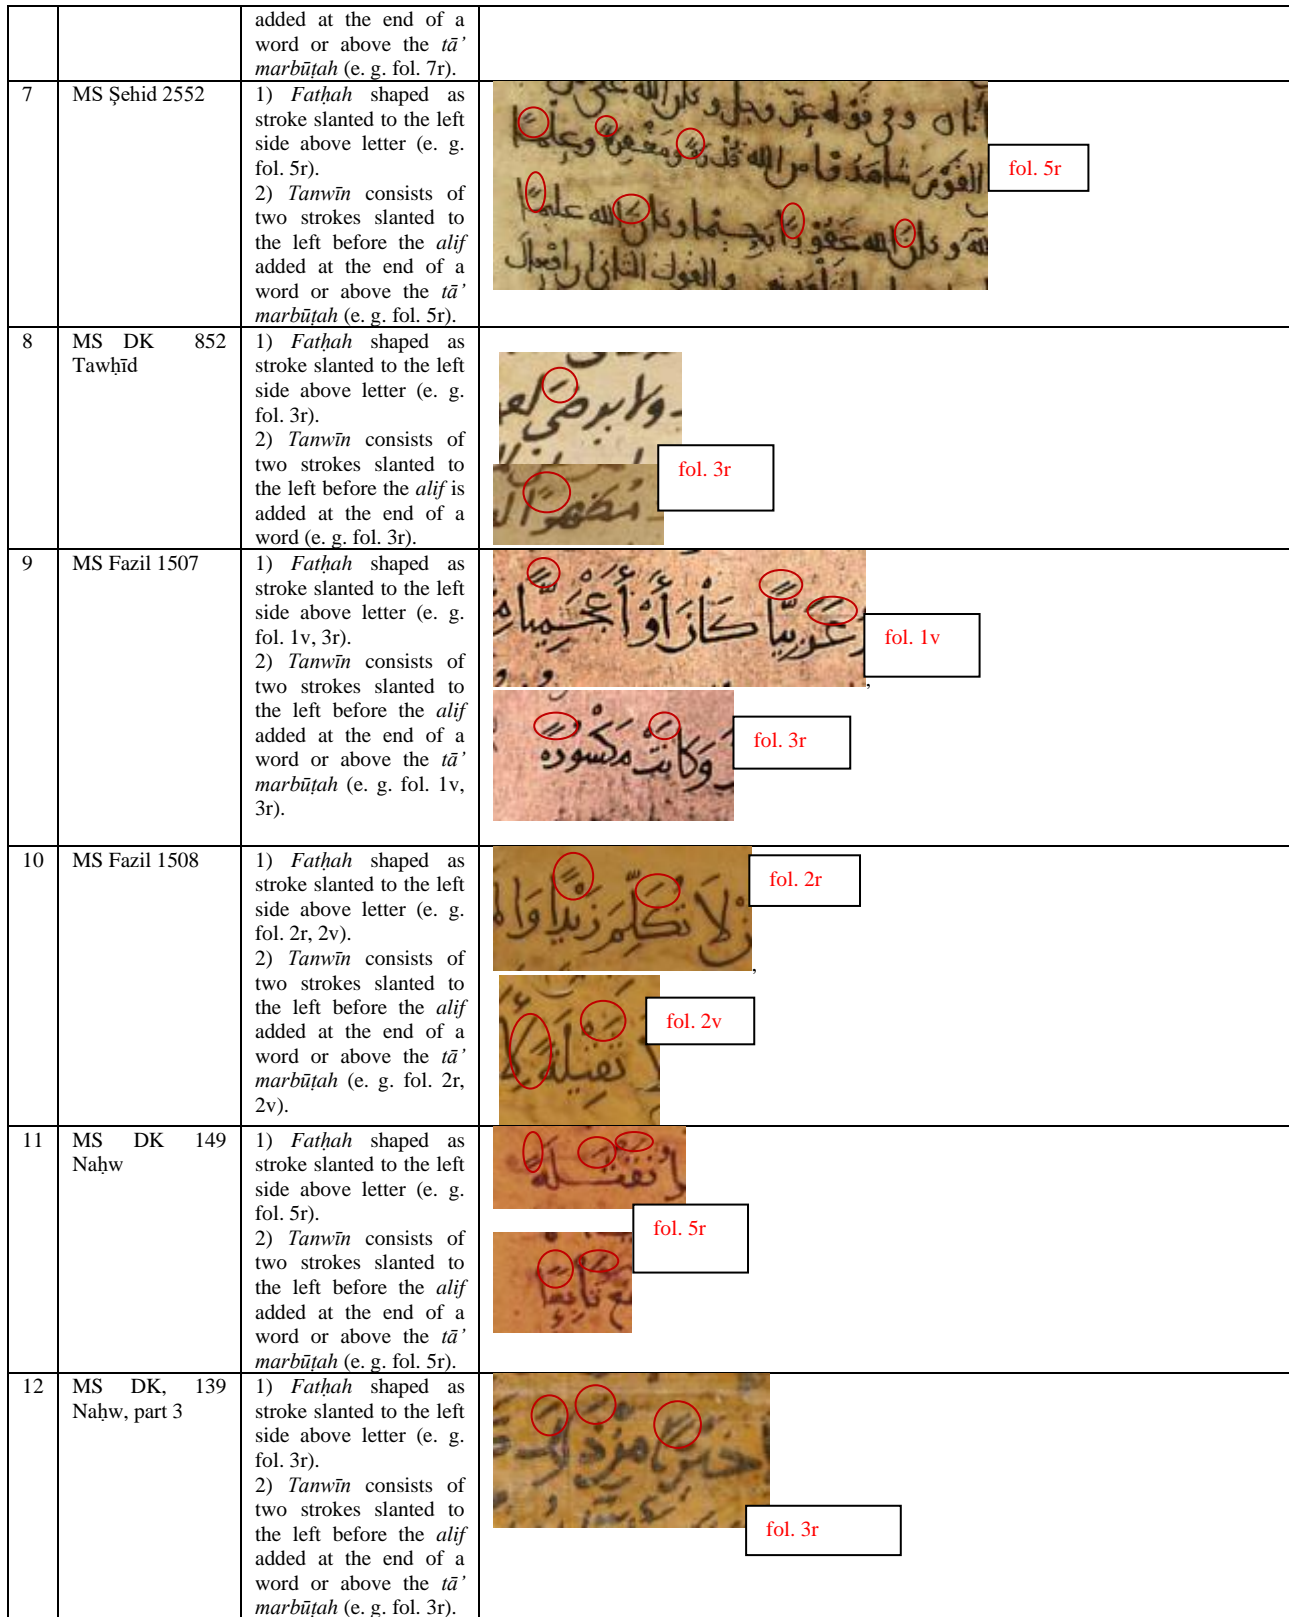 added at the end of a
word or above the tā’
marbūṭah (e. g. fol. 7r).
7
MS Şehid 2552
1) Fatḥah shaped as
stroke slanted to the left
side above letter (e. g.
fol. 5r).
2) Tanwīn consists of
two strokes slanted to
the left before the alif
added at the end of a
word or above the tā’
marbūṭah (e. g. fol. 5r).
fol. 5r
8
MS DK 852
Tawḥīd
1) Fatḥah shaped as
stroke slanted to the left
side above letter (e. g.
fol. 3r).
2) Tanwīn consists of
two strokes slanted to
the left before the alif is
added at the end of a
word (e. g. fol. 3r).
fol. 3r
9
MS Fazil 1507
1) Fatḥah shaped as
stroke slanted to the left
side above letter (e. g.
fol. 1v, 3r).
2) Tanwīn consists of
two strokes slanted to
the left before the alif
added at the end of a
word or above the tā’
marbūṭah (e. g. fol. 1v,
3r).
عَرَبِيًّا كَانَ أَوْ أَعْجَمِيًّا
fol. 1v
,
وَكَانَتْ مَكْسُورَةً
fol. 3r
10
MS Fazil 1508
1) Fatḥah shaped as
stroke slanted to the left
side above letter (e. g.
fol. 2r, 2v).
2) Tanwīn consists of
two strokes slanted to
the left before the alif
added at the end of a
word or above the tā’
marbūṭah (e. g. fol. 2r,
2v).
لَا تُكَلِّمَ زَيْدًا
fol. 2r
,
ثَقِيْلَةً
fol. 2v
11
MS DK 149
Naḥw
1) Fatḥah shaped as
stroke slanted to the left
side above letter (e. g.
fol. 5r).
2) Tanwīn consists of
two strokes slanted to
the left before the alif
added at the end of a
word or above the tā’
marbūṭah (e. g. fol. 5r).
fol. 5r
12
MS DK, 139
Naḥw, part 3
1) Fatḥah shaped as
stroke slanted to the left
side above letter (e. g.
fol. 3r).
2) Tanwīn consists of
two strokes slanted to
the left before the alif
added at the end of a
word or above the tā’
marbūṭah (e. g. fol. 3r).
fol. 3r